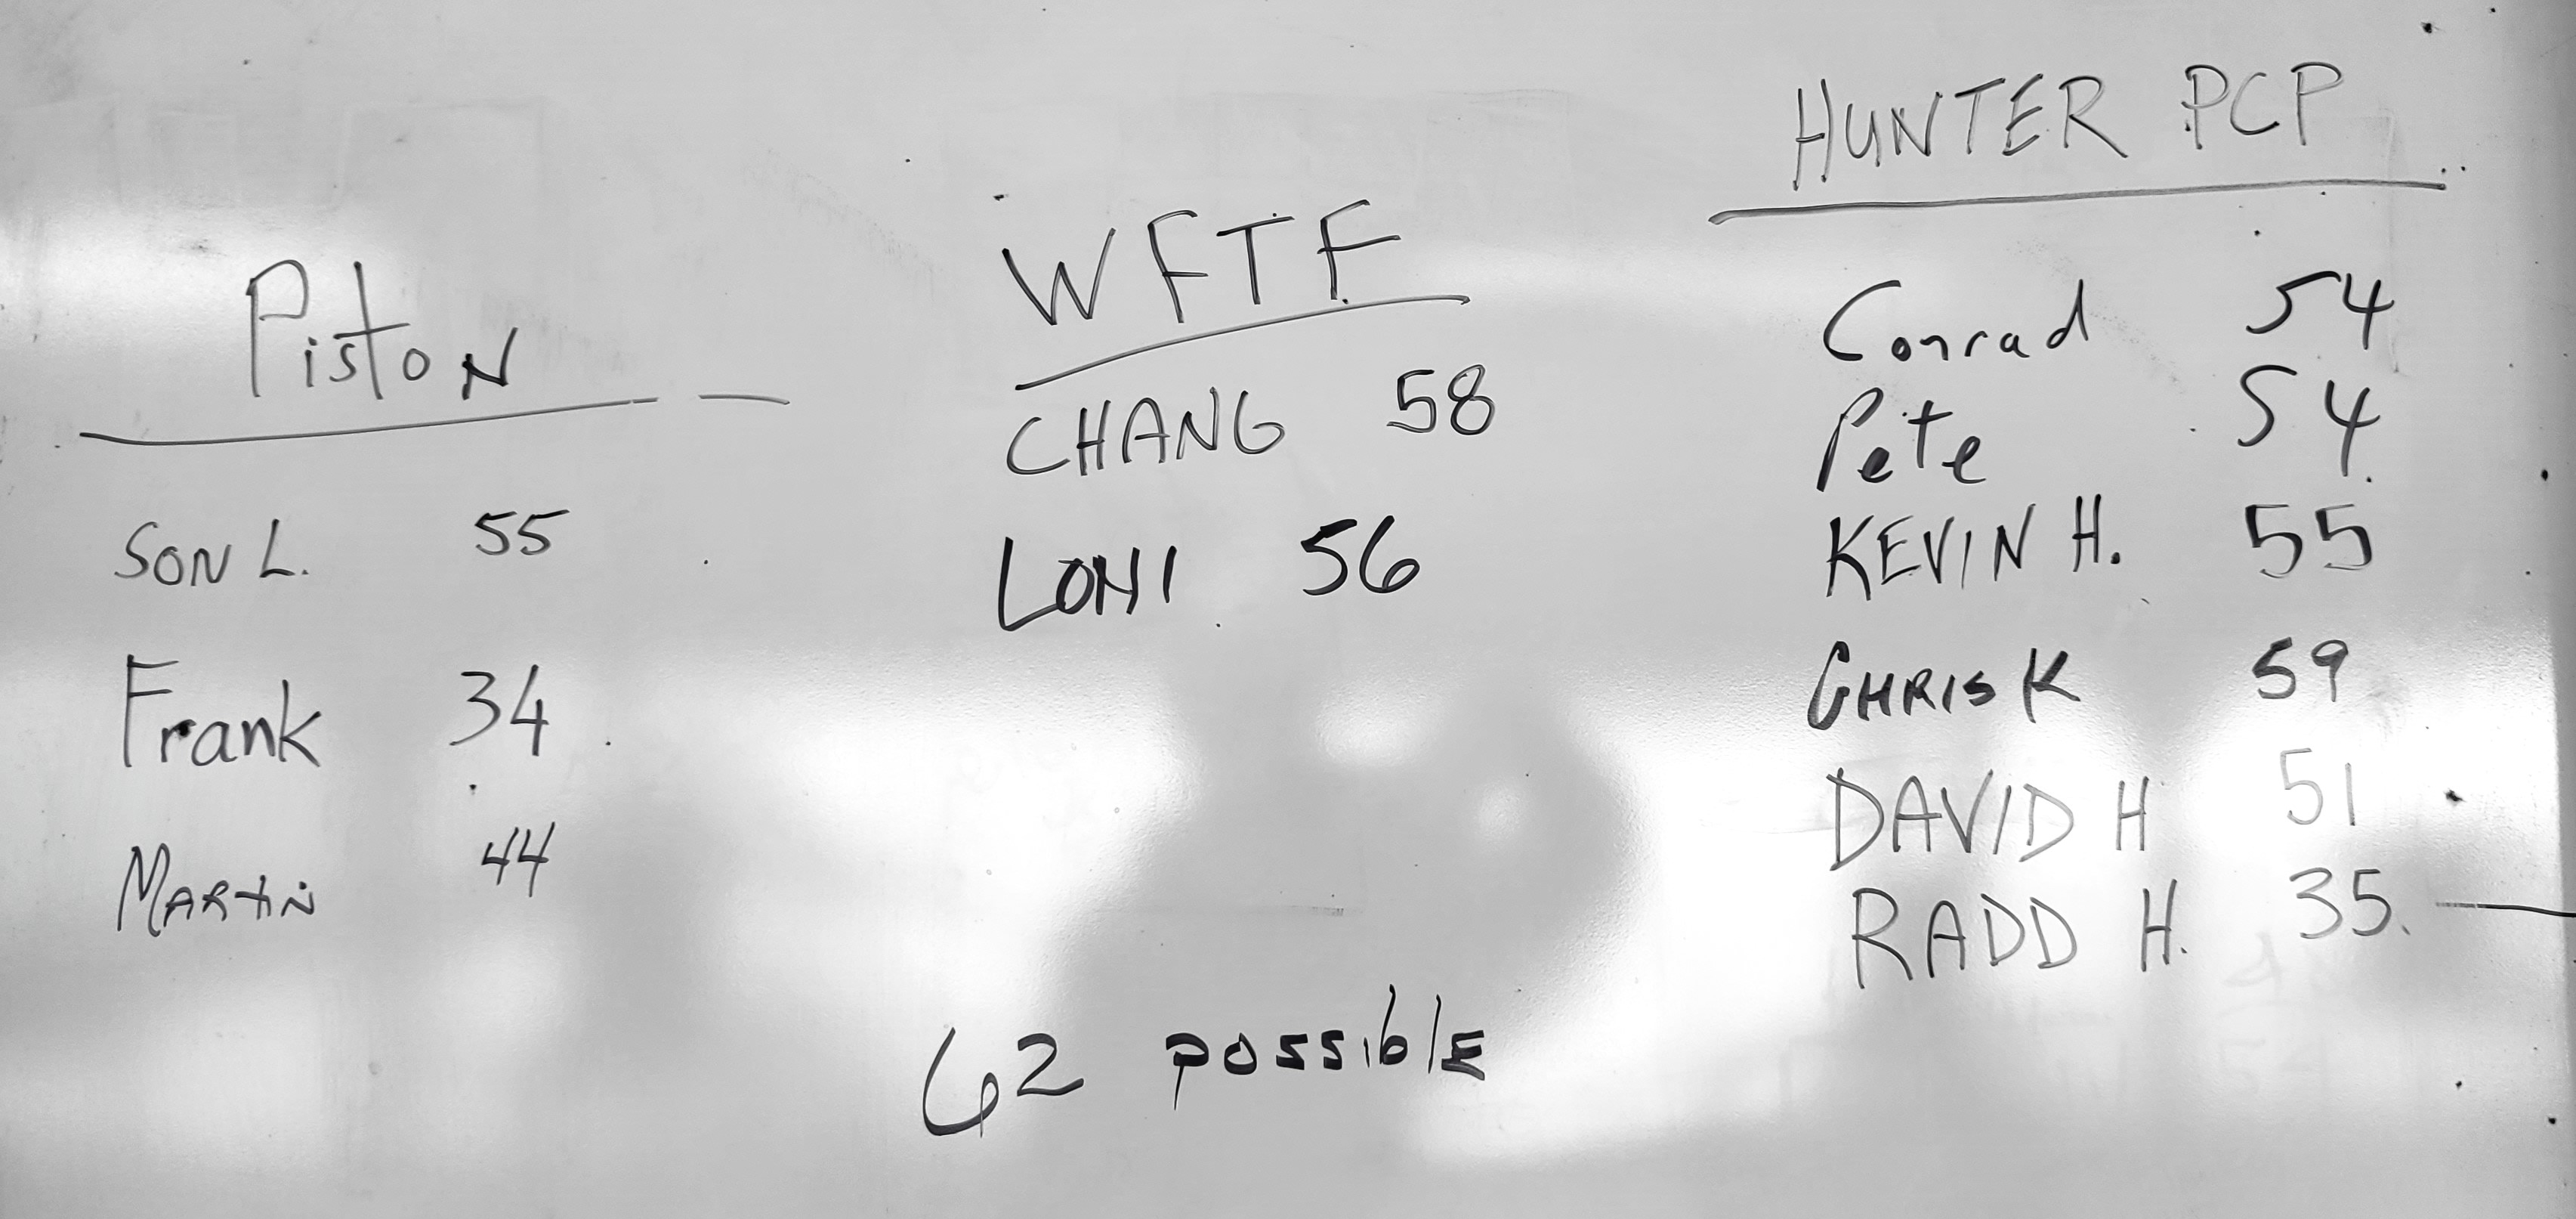 Piston
SON L. 55
Frank 34
MARTIN 44
WFTF
CHANG 58
LONI 56
62 possiblE
HUNTER PCP
Conrad 54
Pete 54
KEVIN H. 55
CHRIS K 59
DAVID H 51
RADD H. 35